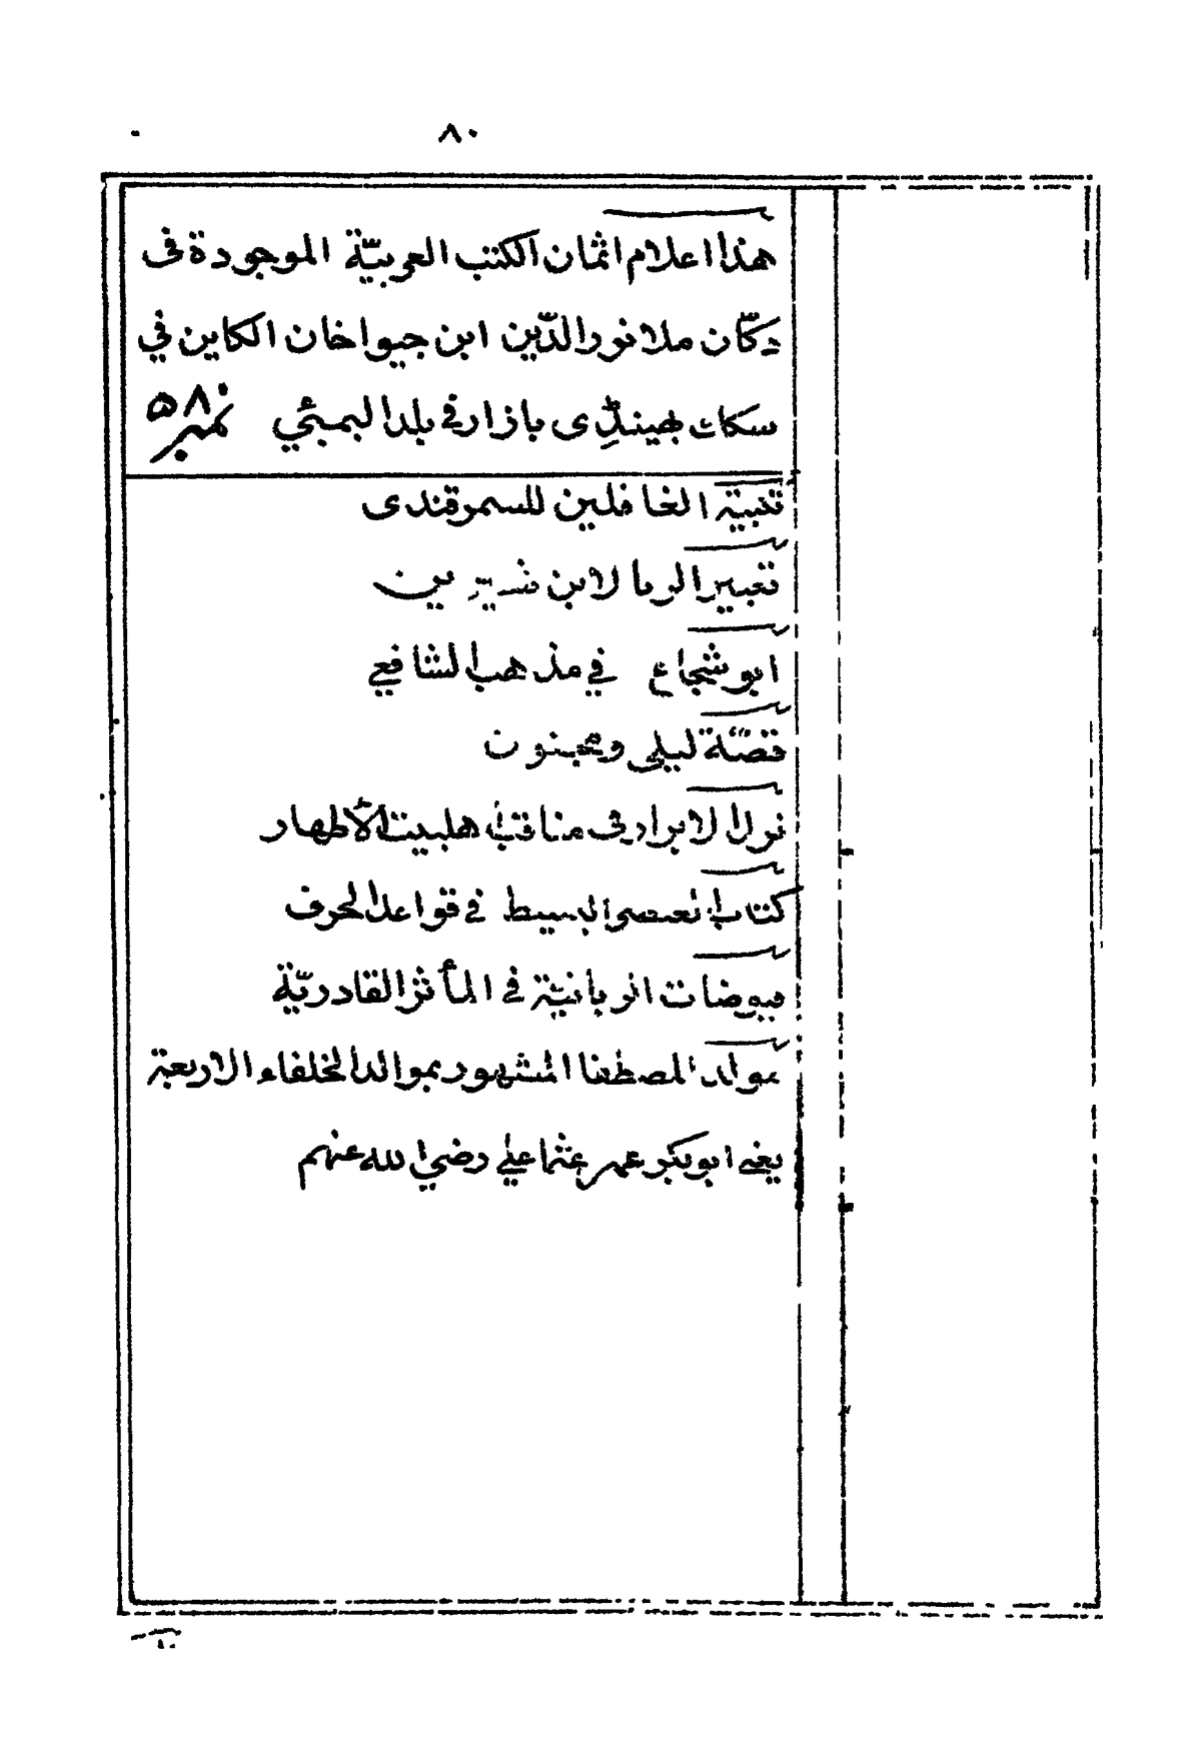 ٨٠
هذا اعلام اثمان الكتب العربيّة الموجودة فى
دكّان ملا نور الدّين ابن جيواخان الكاين في
سكات بهينڈِى بازار في بلد البمبئي نمبر ٥٨
تنبية الغافلين للسمرقندى
تعبير الرءيا لابن سيرين
ابو شجاع في مذهب الشافعي
قصّة ليلى ومجنون
نزل الابرار فى مناقب اهلبيت الأطهار
كتاب البسيط في قواعد الحرف
فيوضات الربانيّة في المأثر القادريّة
موالد المصطفا المشهور بموالد الخلفاء الاربعة
يعنى ابوبكر عمر عثما علي رضي الله عنهم